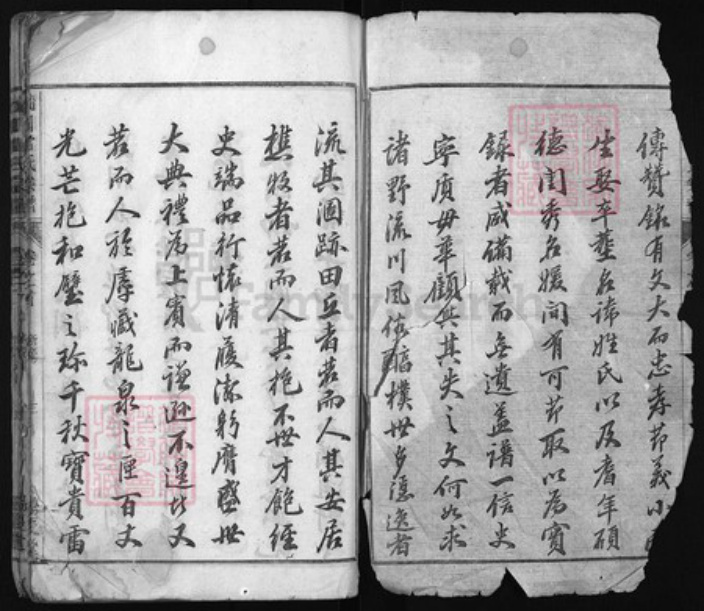 傳贊銘有文大而忠孝節義小
生娶卒塟名諱姓氏以及耆年碩
德閨秀名媛間有可節取以爲實
錄者咸備載而無遺蓋譜一信史
寧質毋華顧與其失之文何如求
諸野流川風俗醇樸世多隱逸者
流其涸跡田丘者若而人其安居
樵牧者若而人其抱不世才飽經
史端品行懷清履潔躬膺盛世
大典禮爲上賓而謙遜不遑者又
若而人於虖藏龍泉之匣百丈
光芒抱和璧之珍千秋寶貴雷
FamilySearch